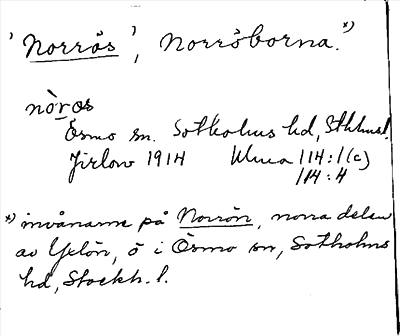 'Norrös', Norröborna.*)
nòr̯os
Ösmo sn. Sotholms hd, Sthlmsl.
Jirlow 1914 Ulma 114:1(c)
114:4
*) invånarne på Norrön, norra delen
av Yxlön, ö i Ösmo sn, Sotholms
hd, Stockh. l.